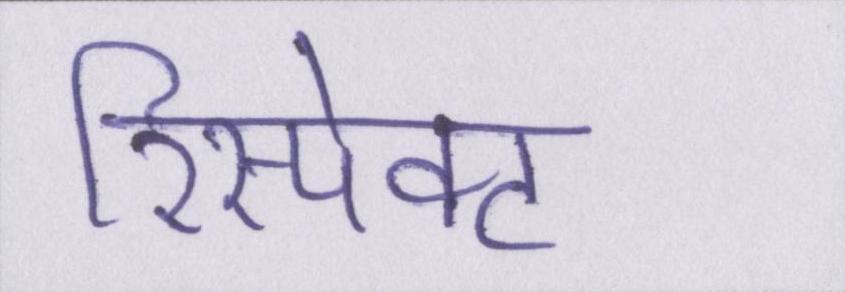 रिस्पेक्ट